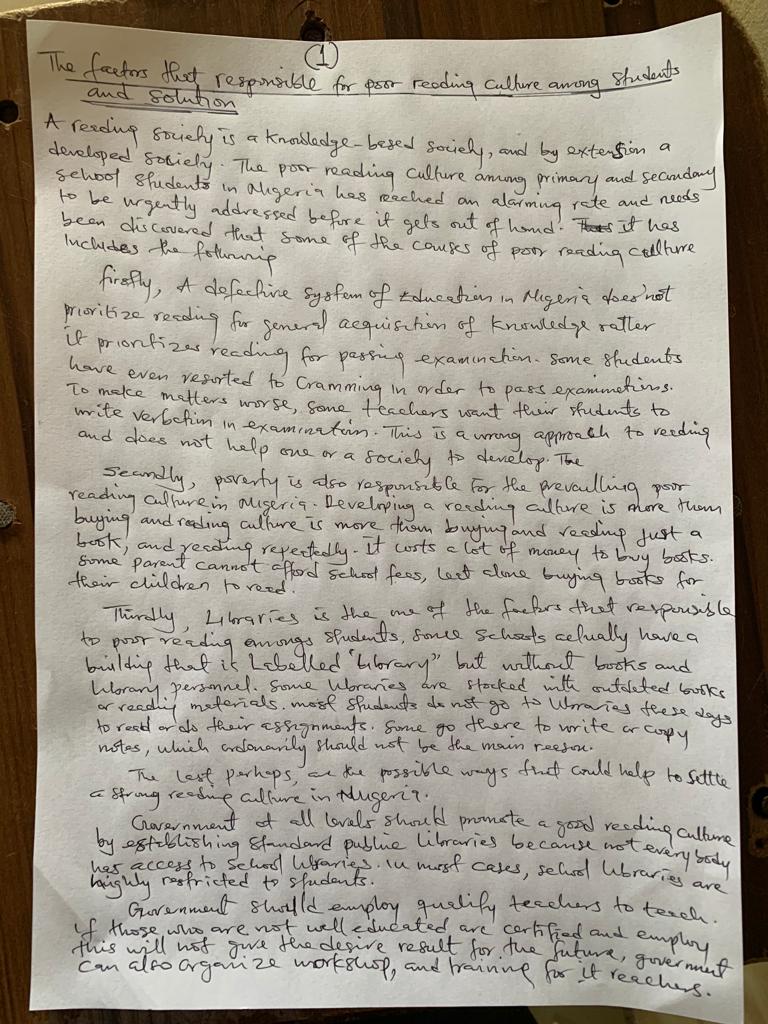 1
The factors that responsible for poor reading culture among students
and solution
A reading society is a knowledge-based society, and by extension a
developed society. The poor reading culture among primary and secondary
school students in Nigeria has reached an alarming rate and needs
to be urgently addressed before it gets out of hand. it has
been discovered that some of the causes of poor reading culture
Includes the following
firstly, A defective system of Education in Nigeria does not
prioritize reading for general acquisition of knowledge rather
it prioritizes reading for passing examination. some students
have even resorted to Cramming in order to pass examinations.
To make matters worse, some teachers want their students to
write verbatim in examination. This is a wrong approach to reading
and does not help one or a society to develop. The
Secondly, poverty is also responsible for the prevailling poor
reading culture in Nigeria. Developing a reading culture is more them
buying and reading culture is more them buying and reading just a
book, and reading repeatedly. It costs a lot of money to buy books.
Some parent cannot afford school fees, let alone buying books for
their children to read.
Thirdly, Libraries is the one of the factors that responsible
to poor reading amongs students, some schools actually have a
building that is Labelled "Library" but without books and
library personnel. some libraries are stocked with outdated books
or reading materials. most students do not go to libraries these days
to read or do their assignments. Some go there to write or copy
notes, which ordonarily should not be the main reason.
The last perhaps, are the possible ways that could help to settle
a strong reading culture in Nigeria.
Government at all levels should promote a good reading culture
by establishing standard public libraries because not every body
has access to school libraries. In most cases, school libraries are
highly restricted to students.
Government should employ qualify teachers to teach.
if those who are not well educated are certified and employ
this will not give the desire result for the future, goverment
can also organize workshop, and training for it teachers.